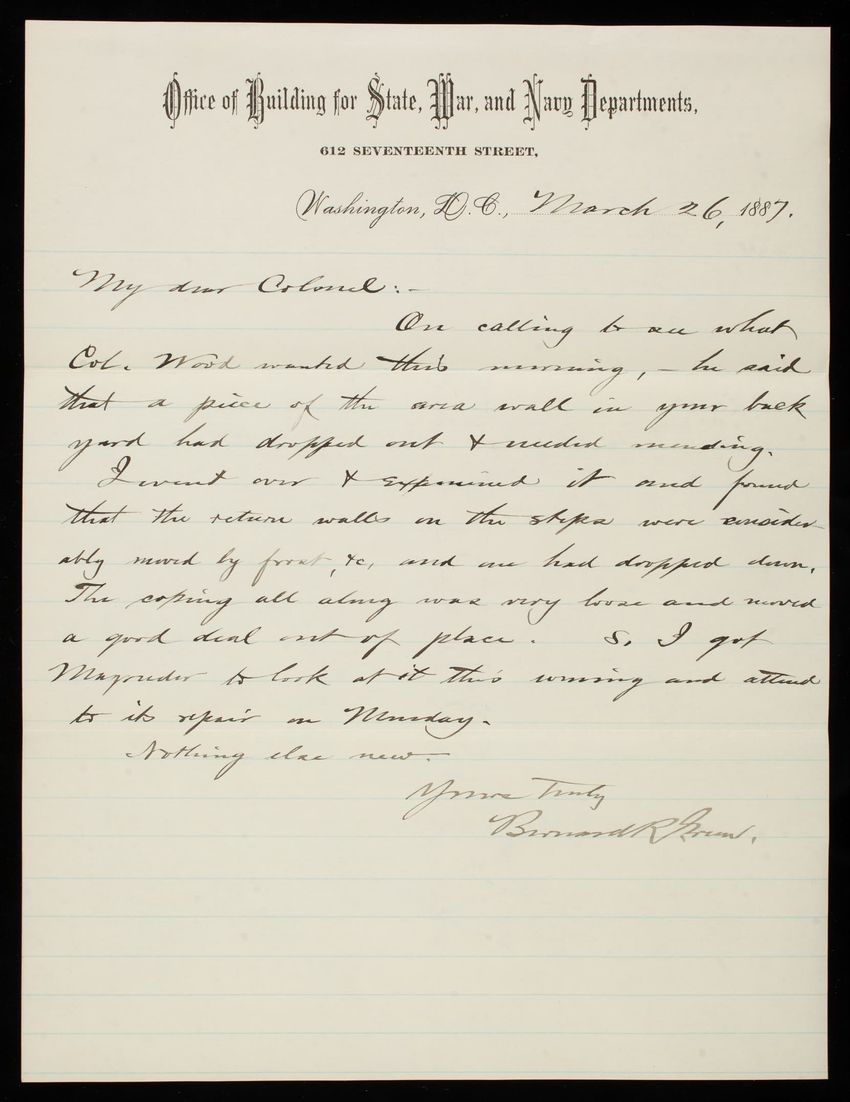 Office of Building for State, War, and Navy Departments,
612 SEVENTEENTH STREET,
Washington, D.C., March 26, 1887.
My dear Colonel:-
On calling to see what
Col. Wood wanted this morning, - he said
that a piece of the area wall in your back
yard had dropped out & needed mending.
I went over & examined it and found
that the return walls on the steps were consider-
ably moved by frost, &c, and one had dropped down.
The coping all along was very loose and moved
a good deal out of place. So I got
Magruder to look at it this morning and attend
to its repair on Monday.
Nothing else new.
Yours Truly
Bernard R Green.